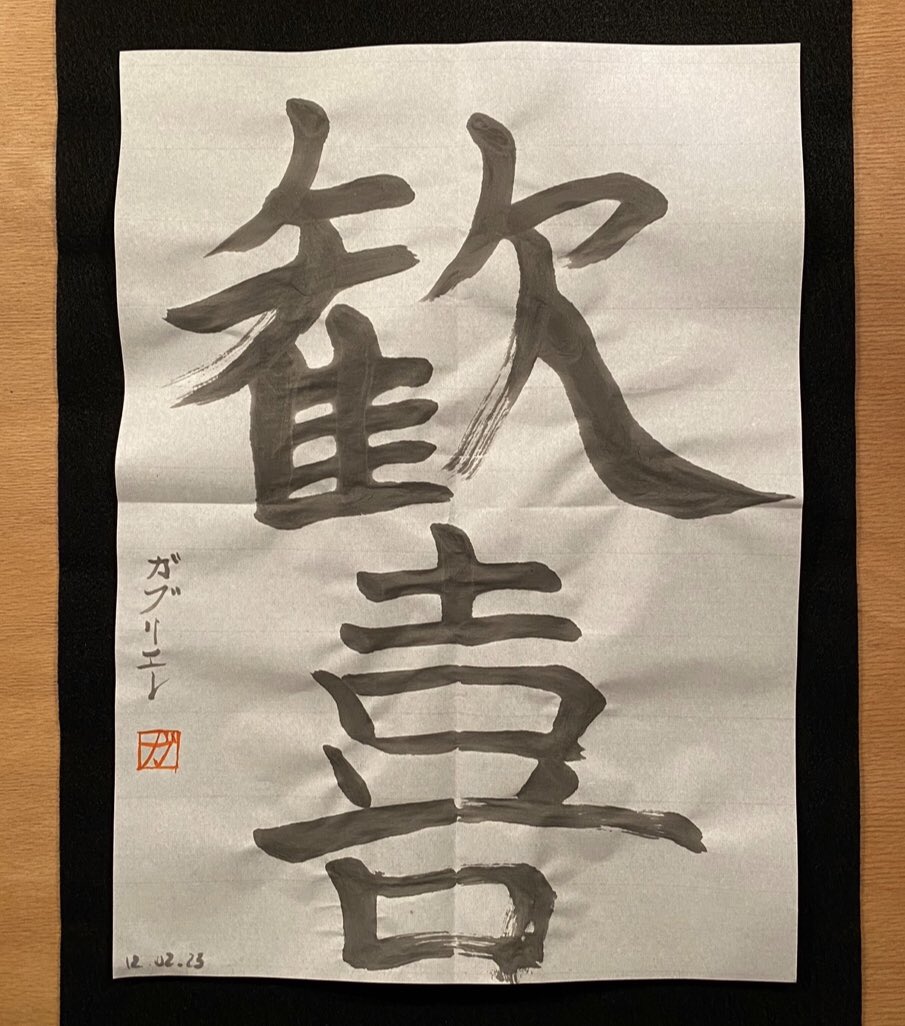 歓喜
ガブリエレ
ガブ
12.02.23